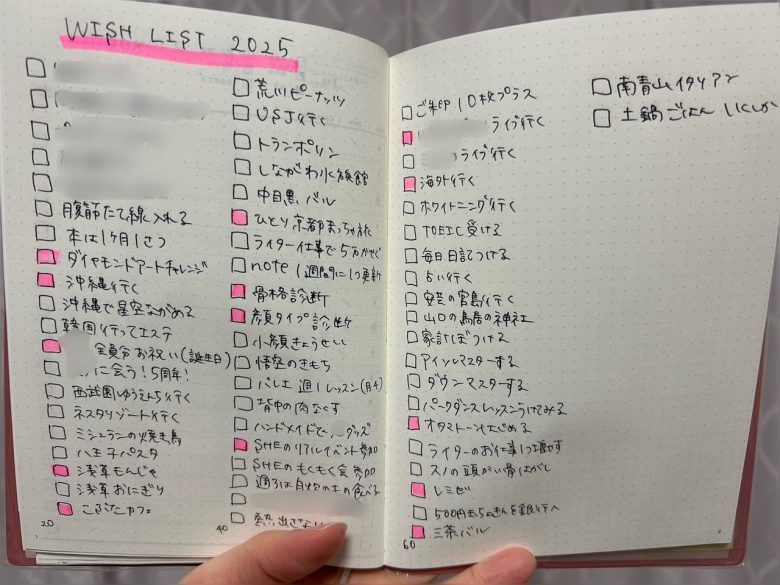 WISH LIST 2025
腹筋たて線入れる
本は1ヶ月1さつ
ダイヤモンドアートチャレンジ
沖縄行く
沖縄で星空ながめる
韓国行ってエステ
全員分お祝い(誕生日)
に会う!5周年!
西武園ゆうえんち行く
ネスタリゾート行く
ミシュランの焼き鳥
八王子パスタ
浅草もんじゃ
浅草おにぎり
こぶたカフェ
20
荒川ピーナッツ
USJ行く
トランポリン
しながわ水族館
中目黒バル
ひとり京都まっちゃ旅
ライター仕事で5万かせぐ
note 1週間に1つ更新
骨格診断
顔タイプ診断
小顔きょうせい
悟空のきもち
バレエ 週1レッスン(月4)
背中の肉なくす
ハンドメイドで グッズ
SHEのリアルイベント参加
SHEのもくもく会参加
週3は自炊のもの食べる
熱出さない
40
ご朱印10枚プラス
ライブ行く
ライブ行く
海外行く
ホワイトニング行く
TOEIC受ける
毎日日記つける
占い行く
安芸の宮島行く
山口の鳥居の神社
家計ぼつける
アイソレマスターする
ダウンマスターする
パークダンスレッスンうけてみる
オタマトーンはじめる
ライターのお仕事1つ増やす
スノの頭がい骨はがし
レミゼ
500円玉ちょきんを銀行へ
三茶バル
60
南青山イタリアン
土鍋ごはん いくしか
2